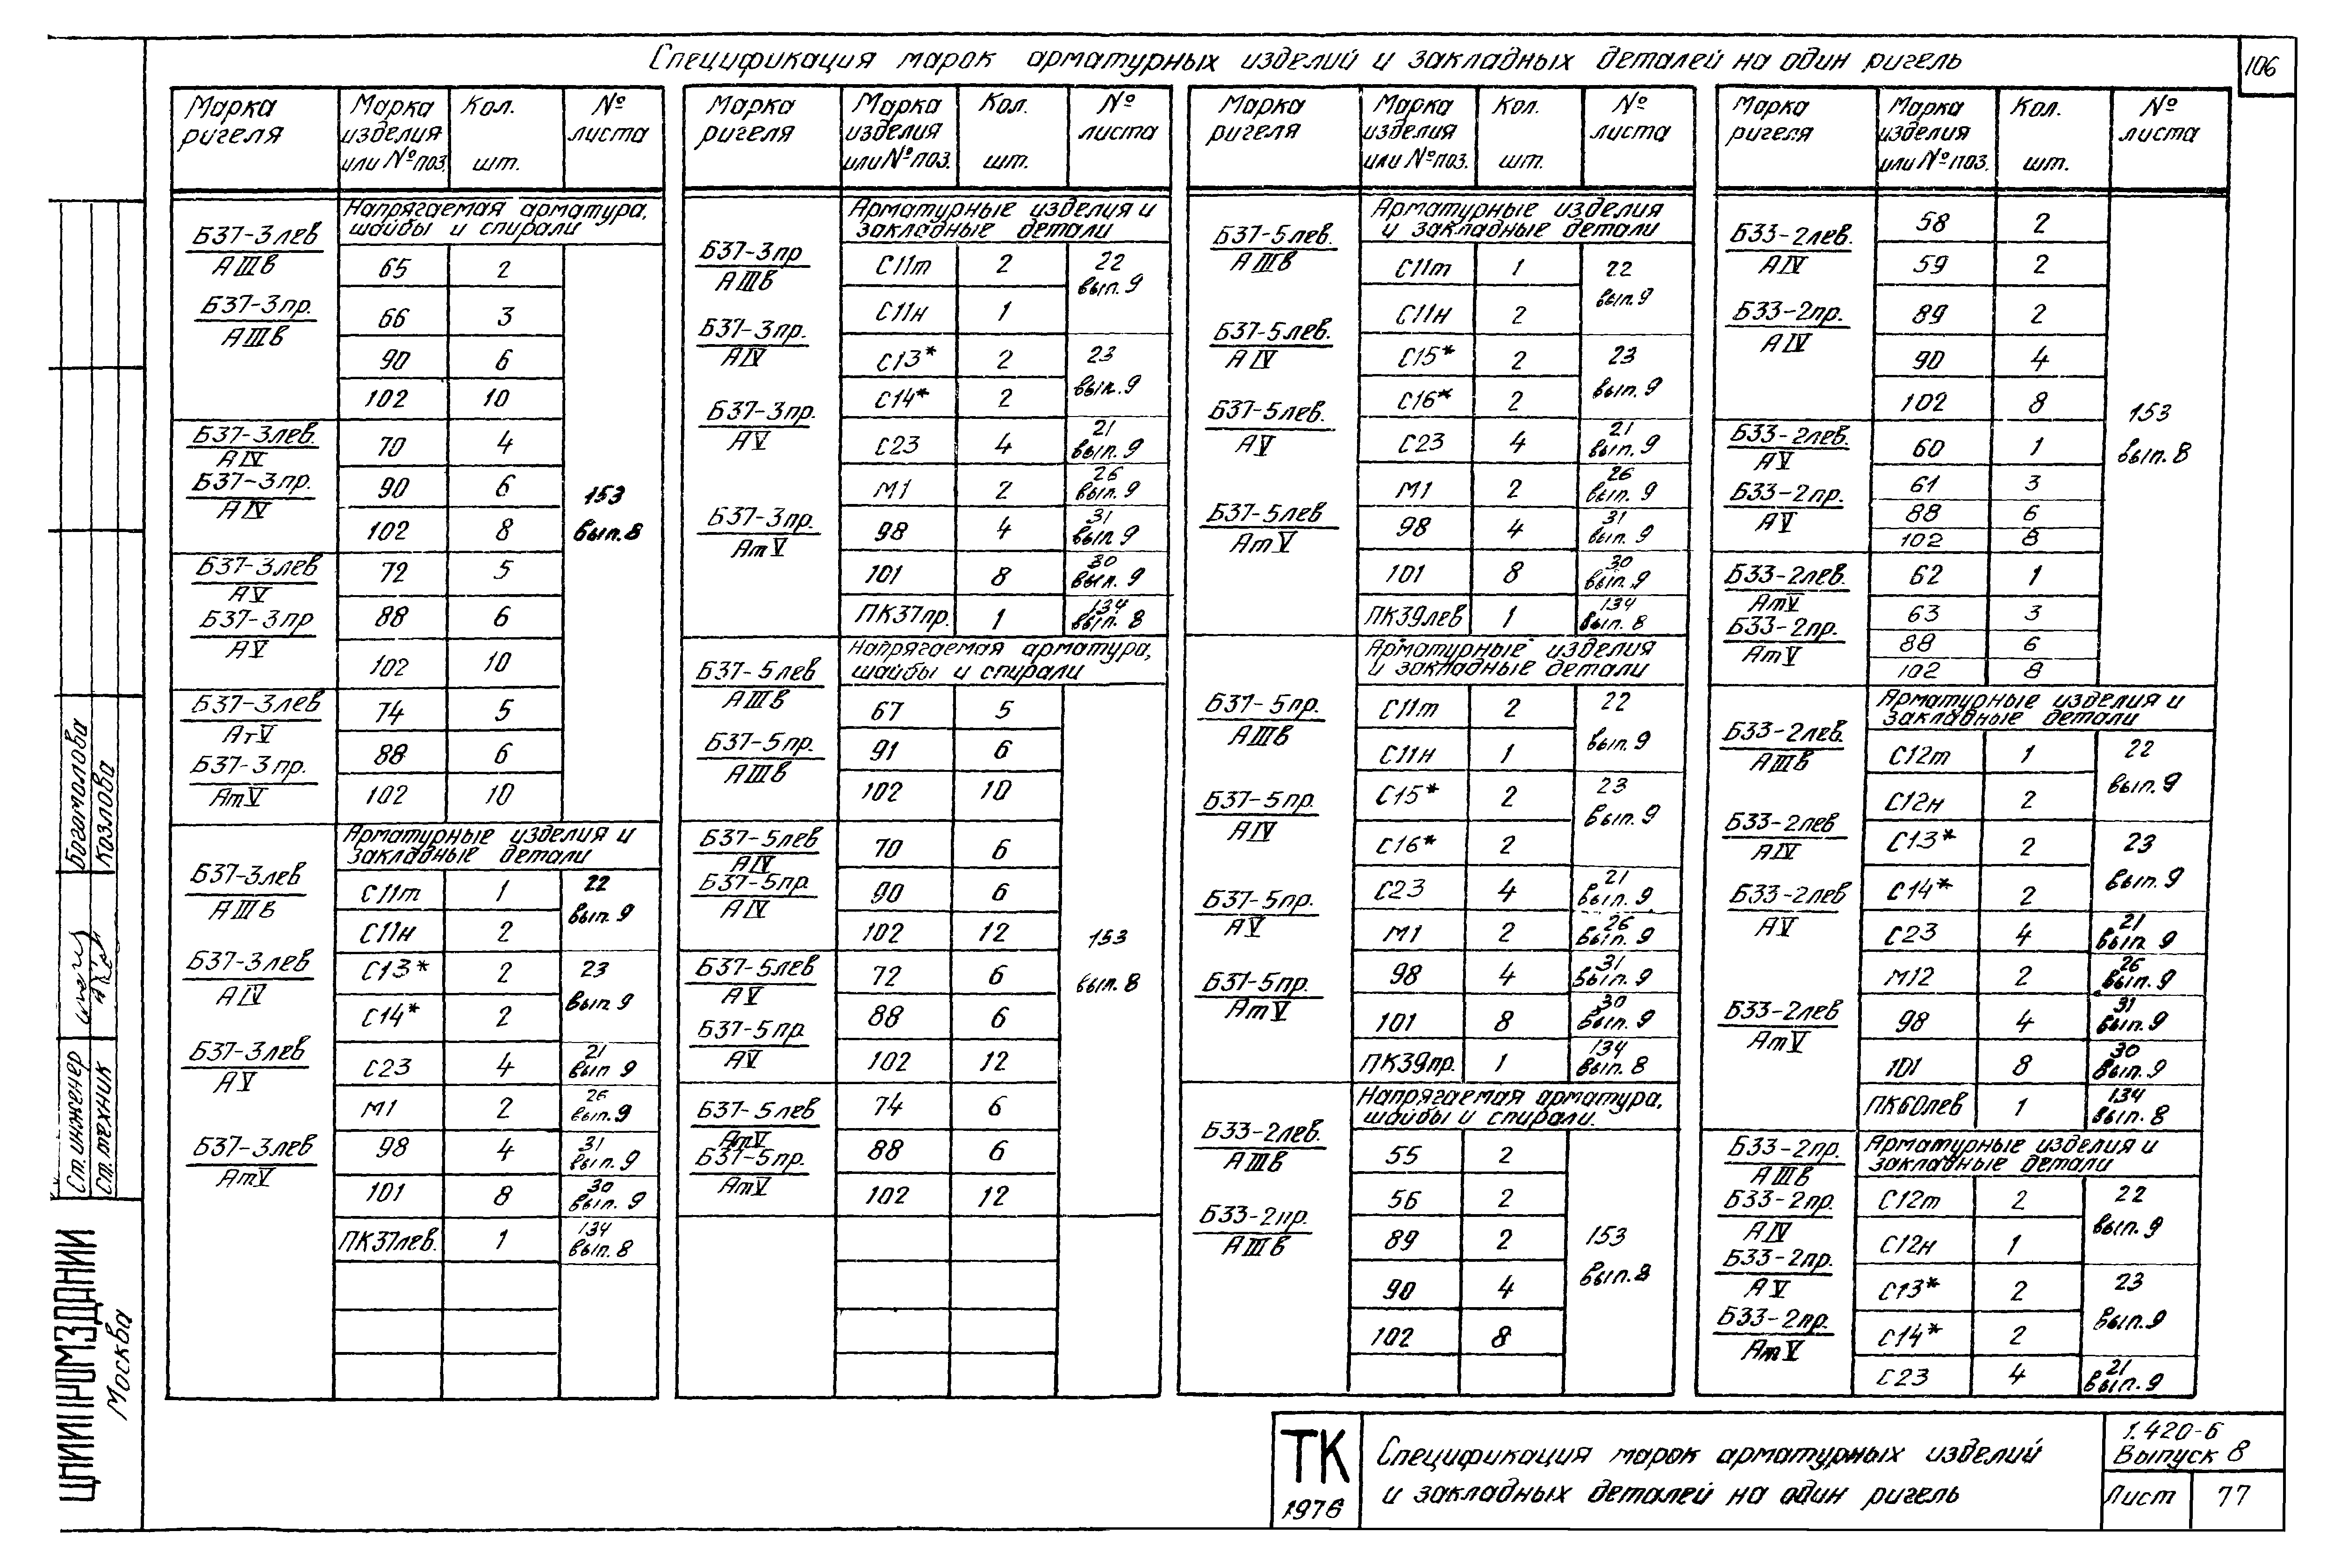 Спецификация марок арматурных изделий и закладных деталей на один ригель
106
Марка ригеля | Марка изделия или № поз. | Кол. шт. | № листа
Б37-3лев АIIIв
Б37-3пр. АIIIв
Напрягаемая арматура, шайбы и спирали
65 2
66 3
90 6
102 10
Б37-3лев. АIV
Б37-3пр. АIV
70 4
90 6
102 8
153 вып. 8
Б37-3лев АV
Б37-3пр АV
72 5
88 6
102 10
Б37-3лев АтV
Б37-3пр. АтV
74 5
88 6
102 10
Арматурные изделия и закладные детали
Б37-3лев АIIIв
Б37-3лев АIV
Б37-3лев АV
Б37-3лев АтV
С11т 1 22 вып. 9
С11н 2
С13* 2 23 вып. 9
С14* 2
С23 4 21 вып 9
М1 2 26 вып. 9
98 4 31 вып. 9
101 8 30 вып. 9
ПК37лев. 1 134 вып. 8
Марка ригеля | Марка изделия или № поз. | Кол. шт. | № листа
Б37-3пр АIIIв
Б37-3пр. АIV
Б37-3пр. АV
Б37-3пр. АтV
Арматурные изделия и закладные детали
С11т 2 22 вып. 9
С11н 1
С13* 2 23 вып. 9
С14* 2
С23 4 21 вып. 9
М1 2 26 вып. 9
98 4 31 вып 9
101 8 30 вып. 9
ПК37пр. 1 134 вып. 8
Напрягаемая арматура, шайбы и спирали
Б37-5лев АIIIв
Б37-5пр. АIIIв
67 5
91 6
102 10
Б37-5лев АIV
Б37-5пр. АIV
70 6
90 6
102 12
153 вып. 8
Б37-5лев АV
Б37-5пр АV
72 6
88 6
102 12
Б37-5лев АтV
Б37-5пр. АтV
74 6
88 6
102 12
Марка ригеля | Марка изделия или № поз. | Кол. шт. | № листа
Б37-5лев. АIIIв
Б37-5лев. АIV
Б37-5лев. АV
Б37-5лев АтV
Арматурные изделия и закладные детали
С11т 1 22 вып. 9
С11н 2
С15* 2 23 вып. 9
С16* 2
С23 4 21 вып. 9
М1 2 26 вып. 9
98 4 31 вып. 9
101 8 30 вып. 9
ПК39лев 1 134 вып. 8
Арматурные изделия и закладные детали
Б37-5пр. АIIIв
Б37-5пр. АIV
Б37-5пр. АV
Б37-5пр. АтV
С11т 2 22 вып. 9
С11н 1
С15* 2 23 вып. 9
С16* 2
С23 4 21 вып. 9
М1 2 26 вып. 9
98 4 31 вып. 9
101 8 30 вып. 9
ПК39пр. 1 134 вып. 8
Напрягаемая арматура, шайбы и спирали.
Б33-2лев. АIIIв
Б33-2пр. АIIIв
55 2
56 2
89 2
90 4
102 8
153 вып. 8
Марка ригеля | Марка изделия или № поз. | Кол. шт. | № листа
Б33-2лев. АIV
Б33-2пр. АIV
58 2
59 2
89 2
90 4
102 8
153 вып. 8
Б33-2лев. АV
Б33-2пр. АV
60 1
61 3
88 6
102 8
Б33-2лев. АтV
Б33-2пр. АтV
62 1
63 3
88 6
102 8
Арматурные изделия и закладные детали
Б33-2лев. АIIIв
Б33-2лев АIV
Б33-2лев АV
Б33-2лев АтV
С12т 1 22 вып. 9
С12н 2
С13* 2 23 вып. 9
С14* 2
С23 4 21 вып. 9
М12 2 26 вып. 9
98 4 31 вып. 9
101 8 30 вып. 9
ПК60лев 1 134 вып. 8
Арматурные изделия и закладные детали
Б33-2пр. АIIIв
Б33-2пр. АIV
Б33-2пр. АV
Б33-2пр. АтV
С12т 2 22 вып. 9
С12н 1
С13* 2 23 вып. 9
С14* 2
С23 4 21 вып. 9
ТК
1976
Спецификация марок арматурных изделий
и закладных деталей на один ригель
1.420-6
Выпуск 8
Лист 77
Ст. инженер Богомолова
Ст. техник Козлова
ЦНИИПРОМЗДАНИЙ
Москва